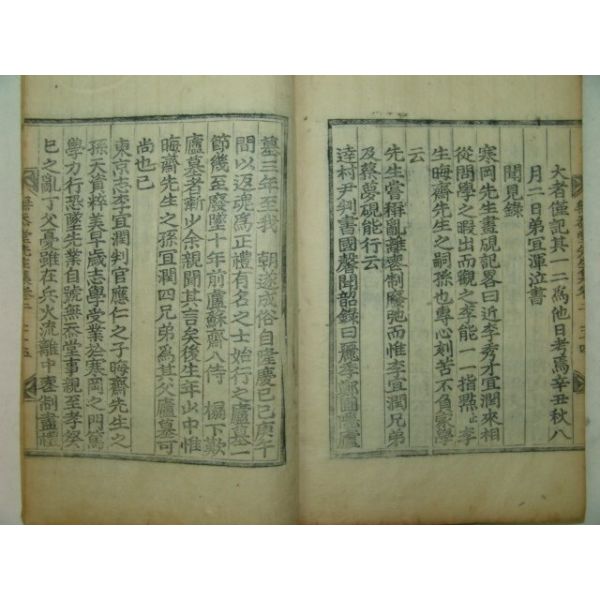 大者僅記其一二為他日考焉辛丑秋八
月二日弟宜渾泣書
聞見錄
寒岡先生書硯記畧曰近李秀才宜潤來相
從問學之暇出而觀之李能一一指點止李
生晦齋先生之嗣孫也專心刻苦不負家學
云
先生嘗稱亂離喪制廢弛而惟李宜潤兄弟
及蔡夢硯能行云
達村尹判書國馨聞韶錄曰麗季鄭圃隱廬
墓三年至我 朝遂成俗自隆慶己巳庚午
間以返魂爲正禮有名之士始行之廬墓一
節幾至廢墜十年前盧蘇齋八侍 榻下歎
廬墓者漸少余親聞其言矣後生年少中惟
晦齋先生之孫宜潤四兄弟為其父廬墓可
尚也已
東京志李宜潤判官應仁之子晦齋先生之
孫天資粹美早歳志學受業於寒岡之門篤
學力行恐墜先業自號無忝堂事親至孝癸
巳之亂丁父憂雖在兵火流離中喪制盡禮